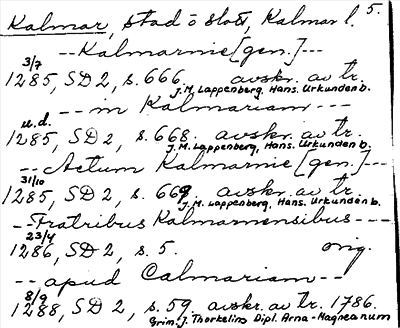 Kalmar, stad o slott, Kalmar l. 5.
-- Kalmarnie [gen.] ---
3/7
1285, SD 2, s. 666. avskr. av tr.
J.M. Lappenberg, Hans. Urkundenb.
-- in Kalmariam ---
u.d.
1285, SD 2, s. 668. avskr. av tr.
J.M. Lappenberg, Hans. Urkundenb.
-- Actum Kalmarnie [gen.] ---
31/10
1285, SD 2, s. 669. avskr. av tr.
J.M. Lappenberg, Hans. Urkundenb.
-- Fratribus Kalmarnensibus ---
23/4
1286, SD 2, s. 5. orig.
-- apud Calmariam --
8/9
1288, SD 2, s. 59. avskr. av tr. 1786.
Grim. J. Thorkelins Dipl. Arna-Magneanum